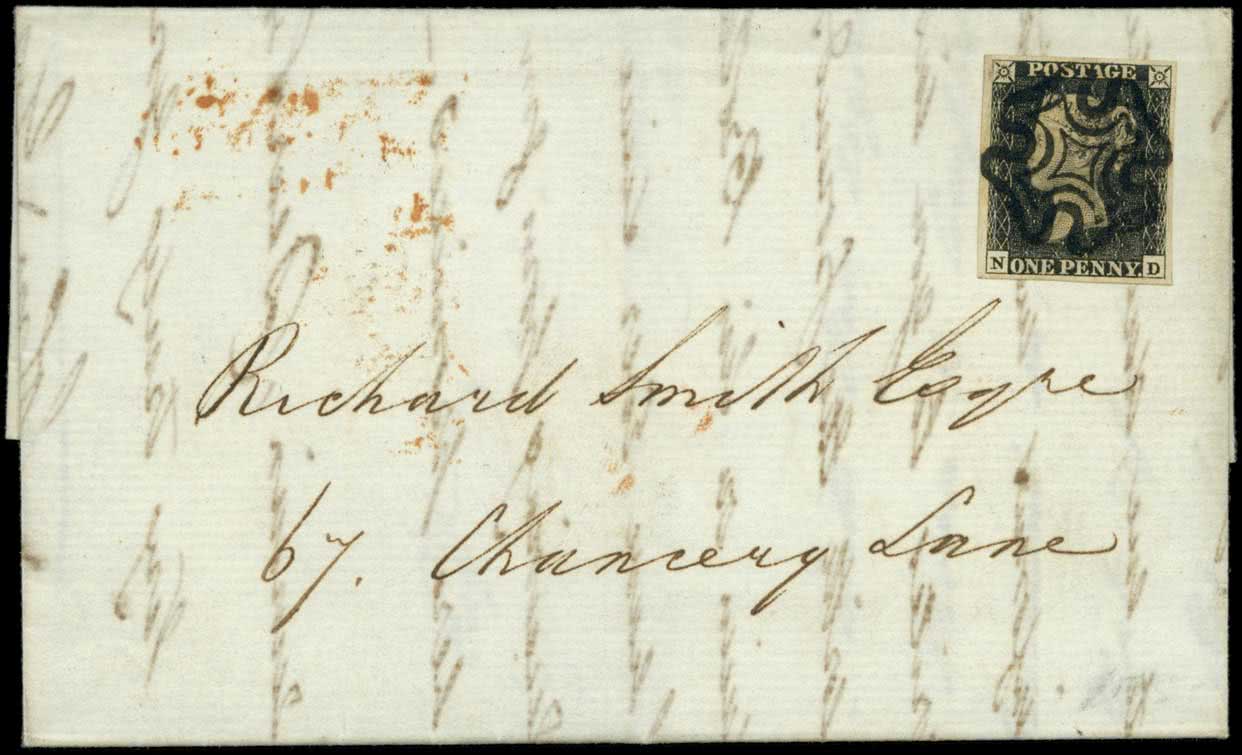 POSTAGE
N ONE PENNY. D
Richard Smith Esqre
67. Chancery Lane